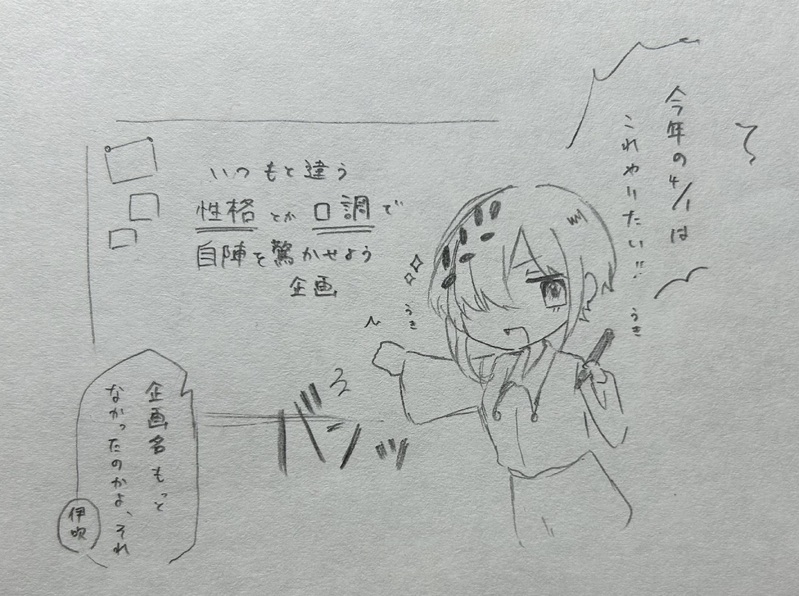 今年の4/1は
これやりたい!!
いつもと違う
性格とか口調で
自陣を驚かせよう
企画
うき
うき
バンッ
企画名もっと
なかったのかよ、それ
伊吹